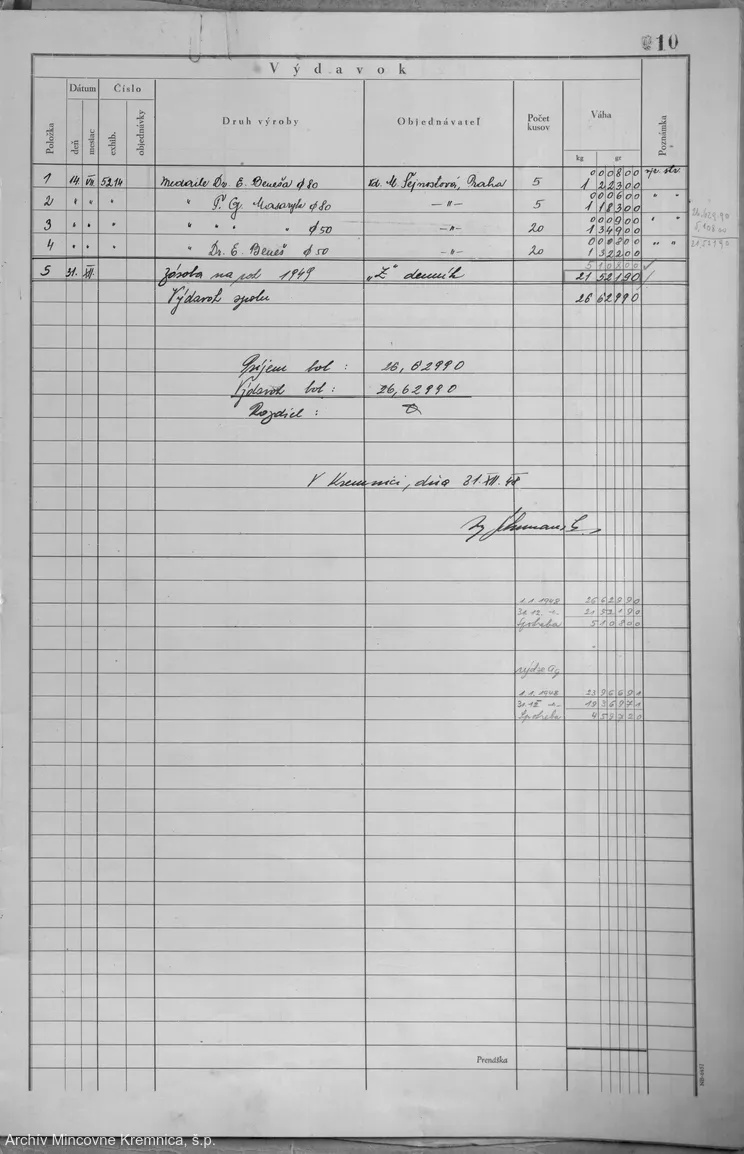 10
Výdavok
Položka
Dátum
deň
mesiac
Číslo
exhib.
objednávky
Druh výroby
Objednávateľ
Počet kusov
Váha
kg
gr
Poznámka
00800
1 14. VII. 5214 Medaile Dr. E. Beneša φ 80 Praha 5 1 22300
00600
2 " " " " T. G. Masaryk φ 80 —"— 5 1 18300 " "
00900
3 " " " " " " " φ 50 20 1 34900 " "
00800
4 " " " " Dr. E. Beneš φ 50 —"— 20 1 32200 " "
510800
5 31. XII. Zásoba na rok 1949 „Z" denník 21 52190
Výdavok spolu 26 62990
26.629.90
5.108.00
21.521.90
Príjem bol : 26,62990
Výdavok bol : 26,62990
Rozdiel :
V Kremnici, dňa 31. XII. 48
1.1. 1948 2662990
31.12. -"- 2152190
Spotreba 510800
rýdze Ag
1.1. 1948 2396691
31.XII -"- 1936971
Spotreba 459720
Prenáška
Archív Mincovne Kremnica, š.p.